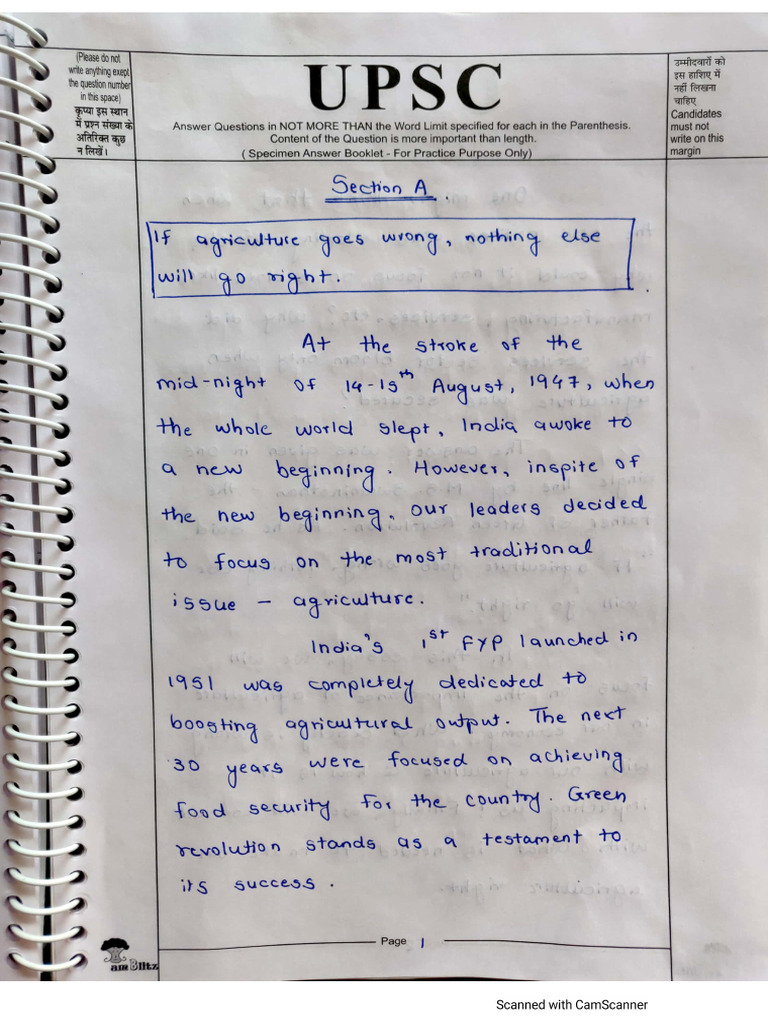 (Please do not
write anything exept
the question number
in this space)
कृप्या इस स्थान
में प्रश्न संख्या के
अतिरिक्त कुछ
न लिखें।
UPSC
Answer Questions in NOT MORE THAN the Word Limit specified for each in the Parenthesis.
Content of the Question is more important than length.
( Specimen Answer Booklet - For Practice Purpose Only)
उम्मीदवारों को
इस हाशिए में
नहीं लिखना
चाहिए
Candidates
must not
write on this
margin
Section A.
If agriculture goes wrong, nothing else
will go right.
At the stroke of the
mid-night of 14-15th August, 1947, when
the whole world slept, India awoke to
a new beginning. However, inspite of
the new beginning, our leaders decided
to focus on the most traditional
issue - agriculture.
India's 1st FYP launched in
1951 was completely dedicated to
boosting agricultural output. The next
30 years were focused on achieving
food security for the country. Green
revolution stands as a testament to
its success.
Page 1
am Blitz
Scanned with CamScanner